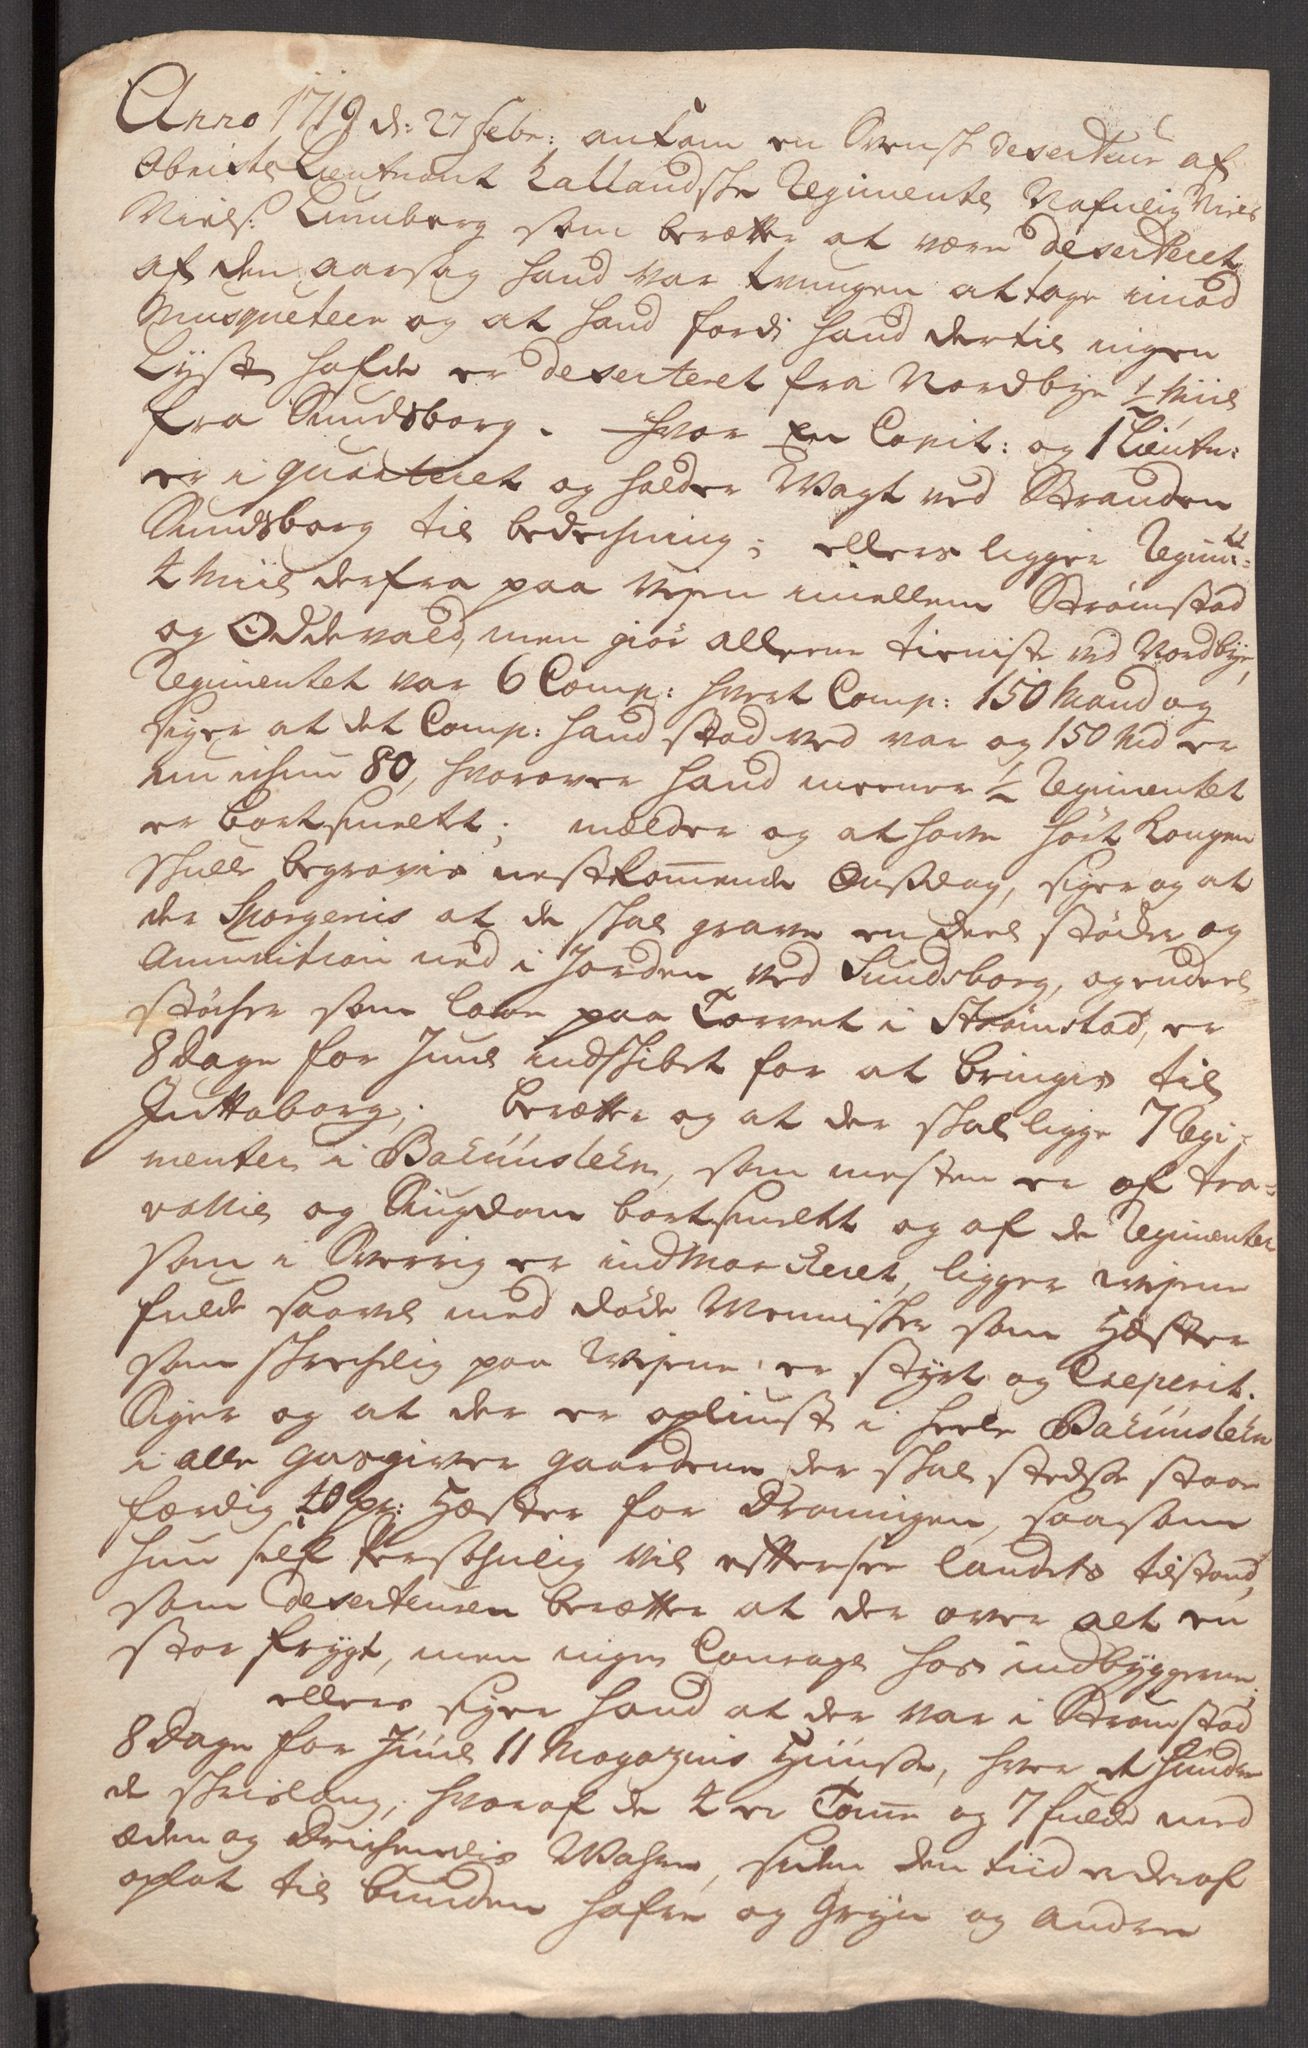 Anno 1719 d: 27 Febr: ankom en Svensk deserteur af
Obriste Lieutnant Hallandske Regimente Nafnlig Niels
Niels: Lundberg som beretter at være deserteret
af den aarsag hand var tvungen at tage imod
Musqueteer og at hand fordi hand dertil ingen
Lyst hafde er deserteret fra Nordbye ½ Miil
fra Sundsborg. hvor En Capit: og 1 Lieutn:
er i quarteret og holder Wagt ved Stranden
Sundsborg til bedechning; ellers ligger Regim:
4 Miil derfra paa Vejen imellem Strømstad
og Oddevald, men giør alleene tieniste ved Nordbye,
Regimentet var 6 Comp: hvert Comp: 150 Mand og
siger at det Comp: hand stod ved var og 150 Md er
nu ichun 80, hvorover hand meener ½ Regimentet
er bortsmeltt; melder og at have hört Kongen
skulle begravis nestkommende Onsdag, siger og at
der Spargeris at de skal grave en deel støcher og
Ammunition ned i Jorden ved Sundsborg, og endeel
støcher som laae paa Torvet i Strömstad, er
8 dage for Juul indskibet for at bringis til
Guttaborg; beretter og at der skal ligge 7 Regi-
menter i Bahuuslehn, som mesten er af tra-
vallie og Siugdom bortsmeltt og af de Regimenter
som i Sverrig er indmarcheret, ligger veyene
fulde saavel med døde Mennisker som Hæster
som skrechelig paa Veyene er styrt og Creperit.
Siger og at der er opliust i heele Bahuuslehn
i alle Gasgiver gaardene der skal stedse staae
færdig 40 pr: Hæster for Dronningen, saasom
hun self Persohnlig vil effterse Landets tilstand,
som deserteuren beretter at der over alt en
stor frygt, men ingen Courage hos indbyggerne;
ellers siger hand at der var i Strømstad
8 Dage for Juul 11 Magazins Huuse, hver et hundre-
de skridlang, hvoraf de 4 er Tomme og 7 fulde med
æden og Drichendis Wahre, siden den tiid er deraf
oplat til bunden hafre og Gryn og andre